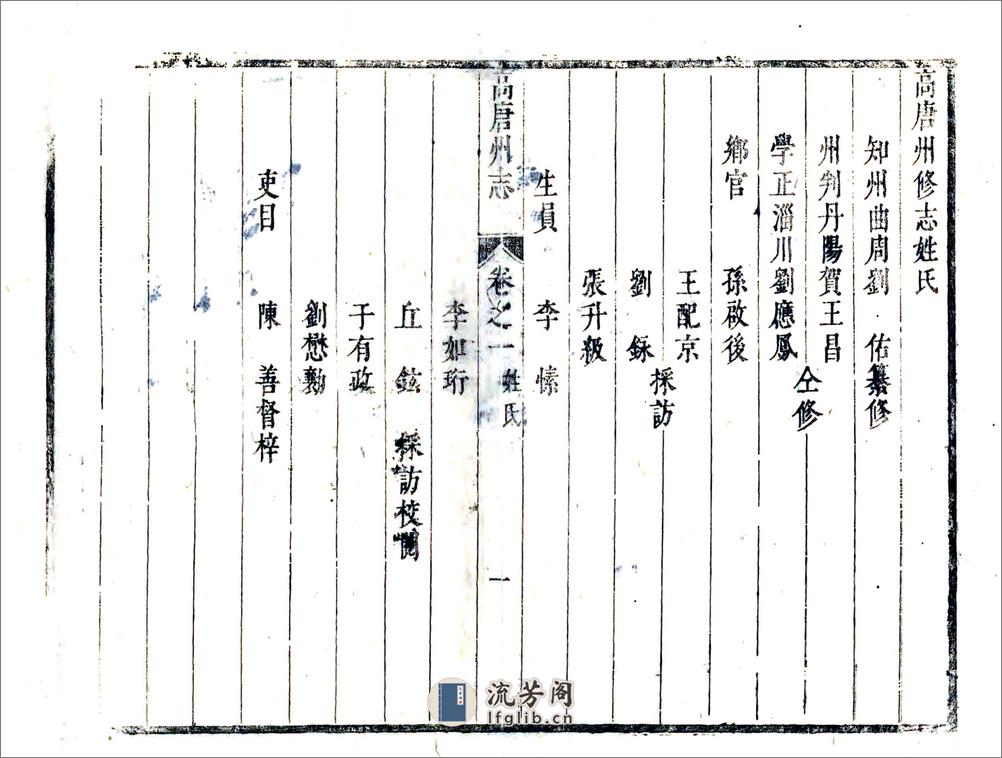 高唐州修志姓氏
知州曲周劉佑纂修
州判丹陽賀王昌
仝修
學正淄川劉應鳳
鄉官 孫啟後
王配京
採訪
劉
張升級
生員 李愫
高唐州志 卷之一 姓氏 一
李如珩
丘鉉 採訪校閱
于有政
劉懋勷
吏目 陳善督梓
流芳阁
lfglib.cn